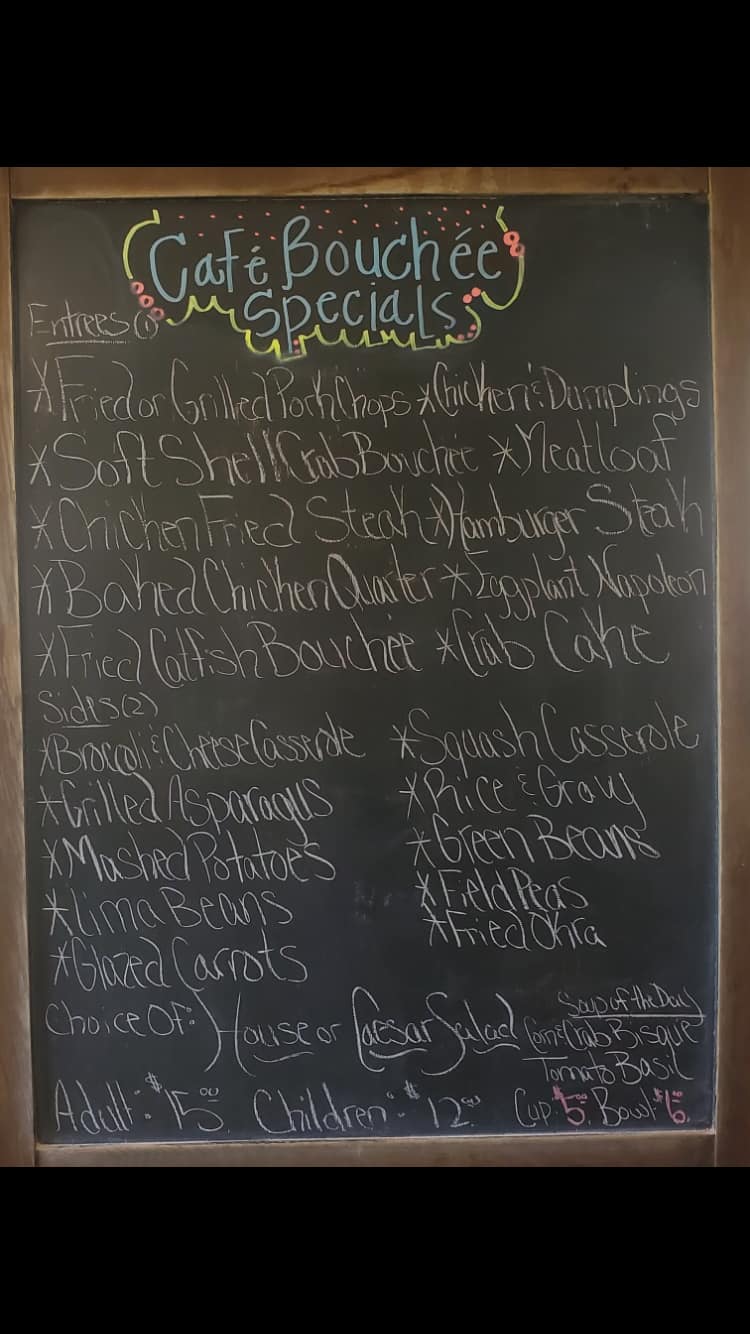 Café Bouchée
Specials
Entrees (1)
*Fried or Grilled Pork Chops *Chicken & Dumplings
*Soft Shell Crab Bouchée *Meatloaf
*Chicken Fried Steak *Hamburger Steak
*Baked Chicken Quarter *Eggplant Napoleon
*Fried Catfish Bouchée *Crab Cake
Sides (2)
*Broccoli & Cheese Casserole *Squash Casserole
*Grilled Asparagus *Rice & Gravy
*Mashed Potatoes *Green Beans
*Lima Beans *Field Peas
*Glazed Carrots *Fried Okra
Choice Of: House or Caesar Salad
Soup of the Day
Corn & Crab Bisque
Tomato Basil
Adult: $15.00 Children: $12.00 Cup: $5.00 Bowl: $6.00